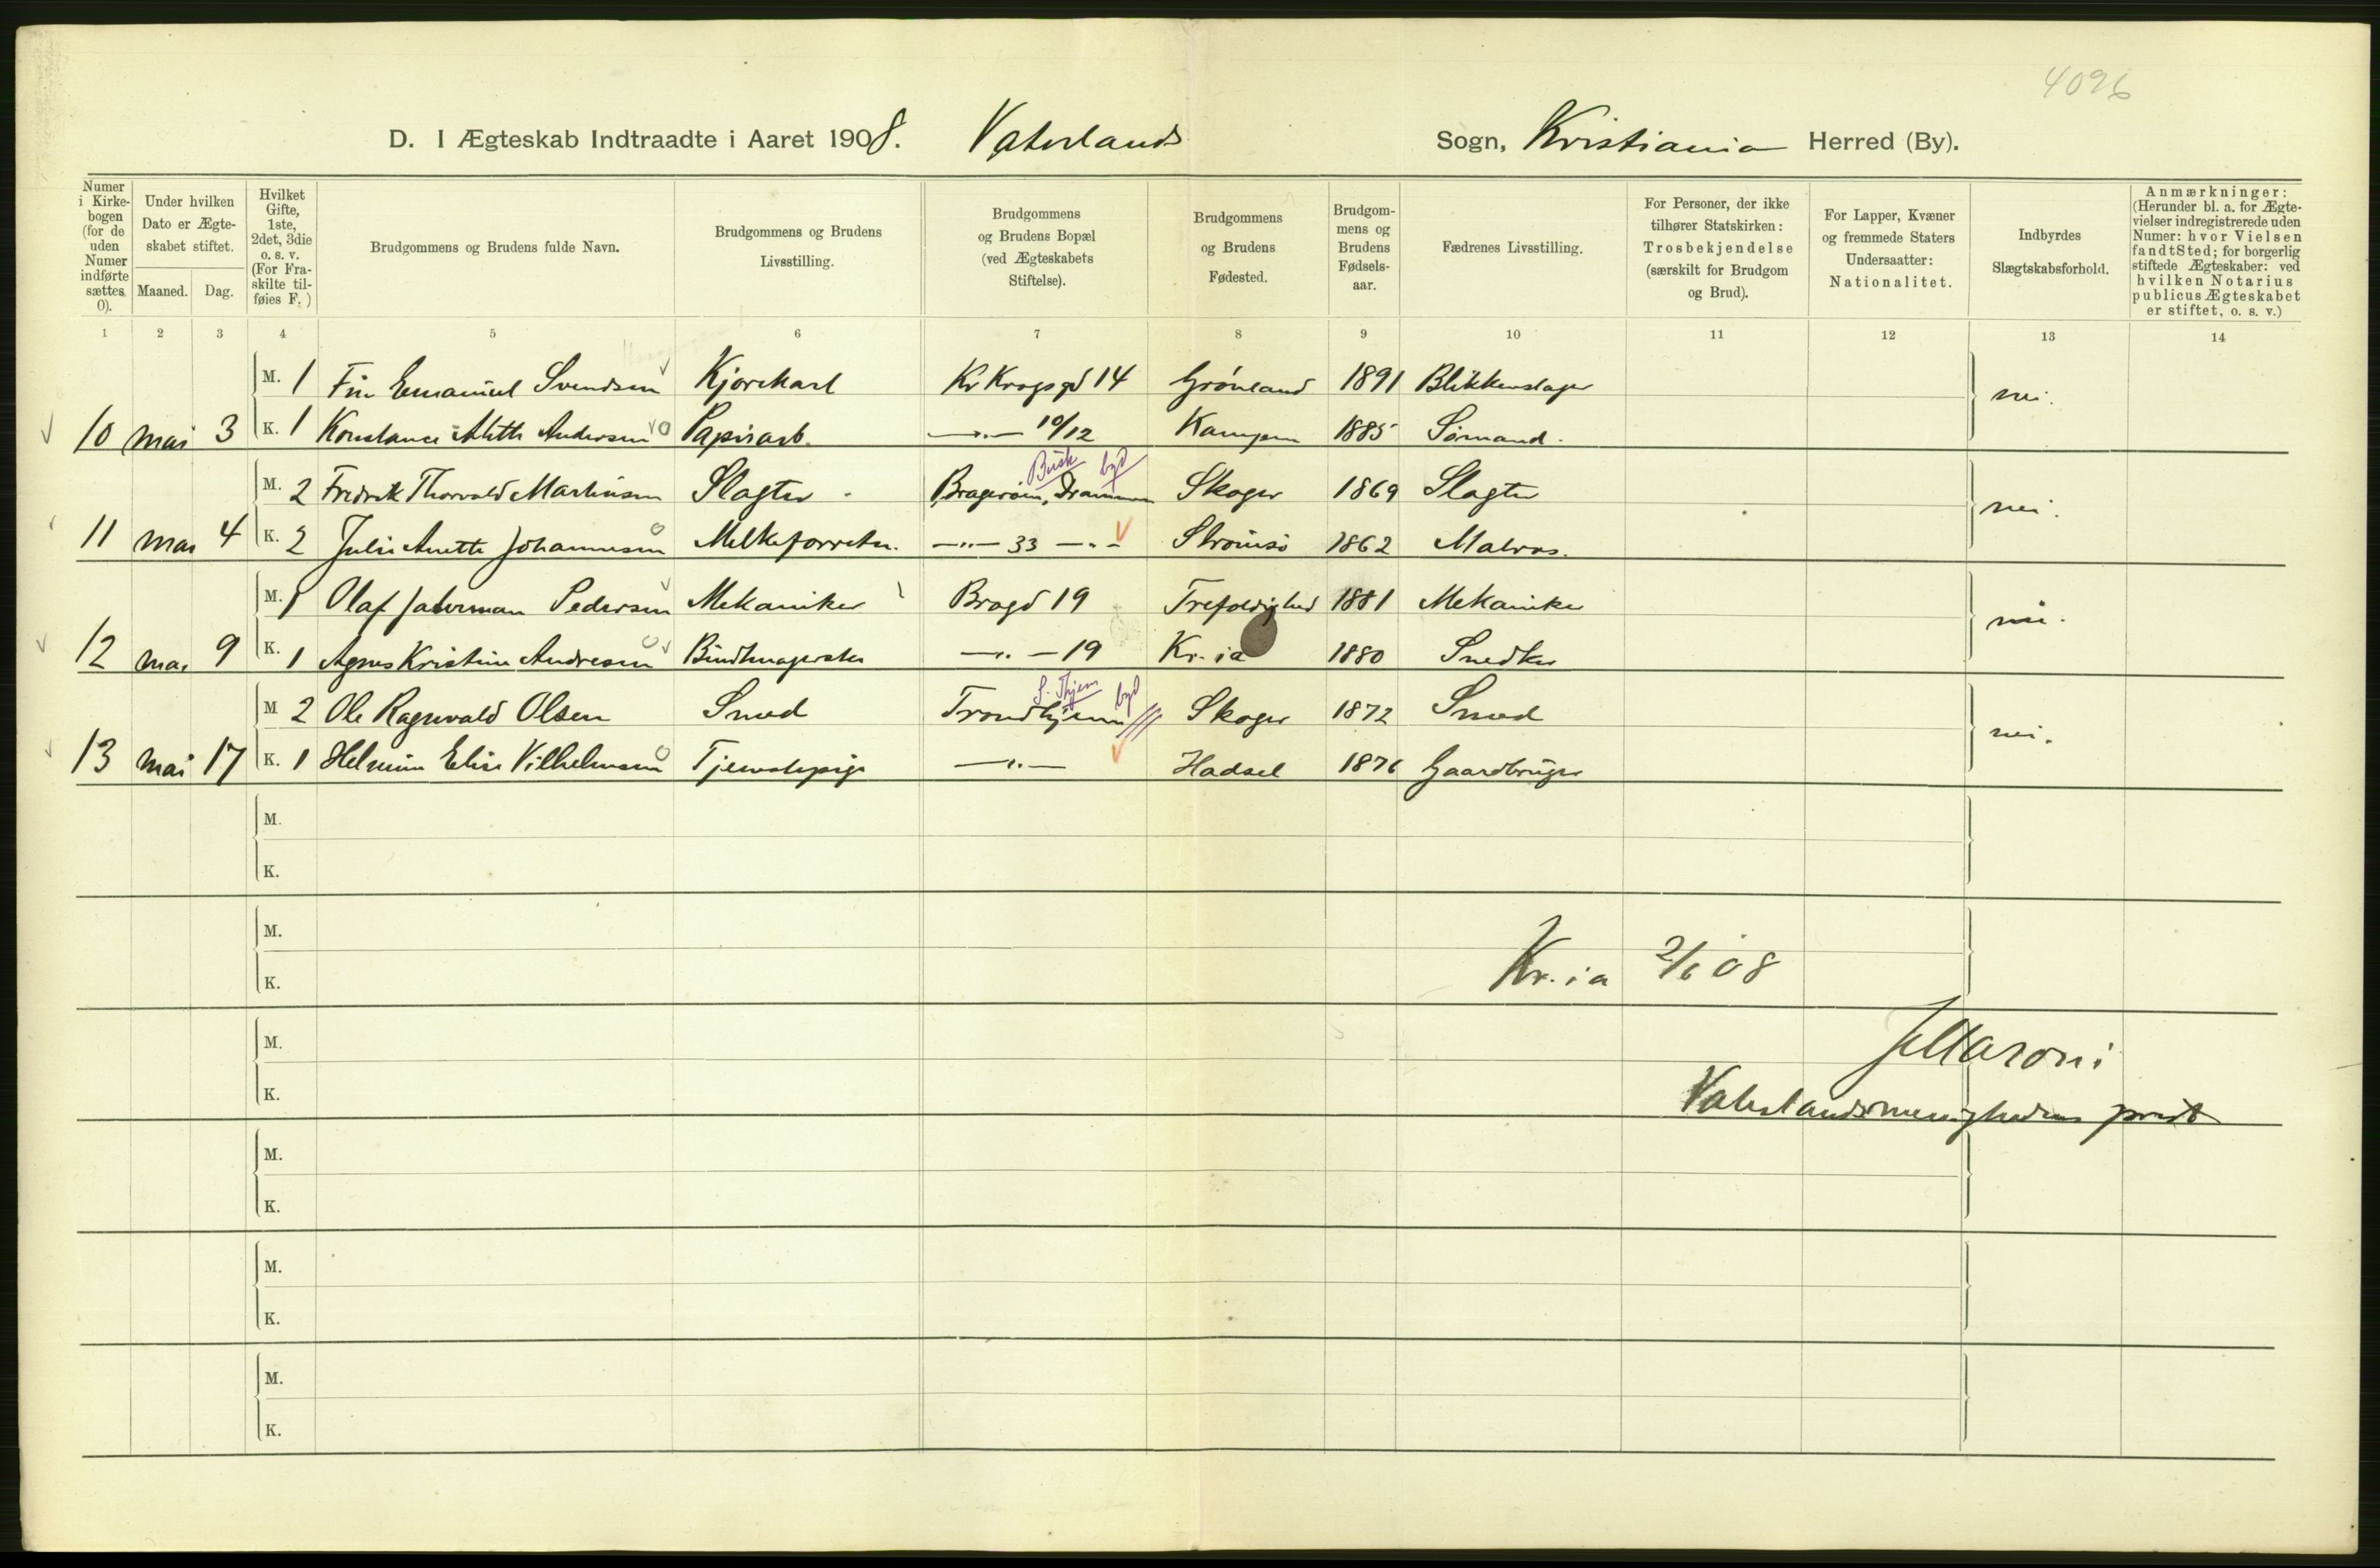 4096
D. I Ægteskab Indtraadte i Aaret 1908. Vaterlands Sogn, Kristiania Herred (By).
Numer i Kirkebogen (for de uden Numer indførte sættes 0).
Under hvilken Dato er Ægteskabet stiftet.
Maaned. Dag.
Hvilket Gifte, 1ste, 2det, 3die o. s. v. (For Fraskilte tilføies F.)
Brudgommens og Brudens fulde Navn.
Brudgommens og Brudens Livsstilling.
Brudgommens og Brudens Bopæl (ved Ægteskabets Stiftelse).
Brudgommens og Brudens Fødested.
Brudgommens og Brudens Fødselsaar.
Fædrenes Livsstilling.
For Personer, der ikke tilhører Statskirken: Trosbekjendelse (særskilt for Brudgom og Brud).
For Lapper, Kvæner og fremmede Staters Undersaatter: Nationalitet.
Indbyrdes Slægtskabsforhold.
Anmærkninger: (Herunder bl. a. for Ægtevielser indregistrerede uden Numer: hvor Vielsen fandt Sted; for borgerlig stiftede Ægteskaber: ved hvilken Notarius publicus Ægteskabet er stiftet, o. s. v.)
1 2 3 4 5 6 7 8 9 10 11 12 13 14
M. 1 Fin Emanuel Svendsen Kjørekarl Kr Krogsgd 14 Grønland 1891 Blikkenslager nei.
10 mai 3 K. 1 Konstance Alette Andersen Papirarb. —„— 10/12 Kampen 1885 Sömand.
Busk byd
M. 2 Fredrik Thorvald Martinsen Slagter Bragerøen, Drammen Skoger 1869 Slagter nei.
11 mai 4 K. 2 Julie Anette Johannesen Melkeforretn. —„— 33 —„— Strömsö 1862 Matros.
M. 1 Olaf Pedersen Mekaniker Brogd 19 Trefoldighed 1881 Mekaniker nei.
12 mai 9 K. 1 Agnes Kristine Andresen Buntmagerske —„— 19 Kr.ia 1880 Snedker
S. Thjem byd
M 2 Ole Ragnvald Olsen Smed Trondhjem Skoger 1872 Smed nei.
13 mai 17 K. 1 Helmine Elise Vilhelmsen Tjenestepige —„— Hadsel 1876 Gaardbruger
M.
K.
M.
K.
Kr.ia 2/6 08
M.
Maroni
K.
Vaterlandsmenighedens prest
M.
K.
M.
K.
M.
K.